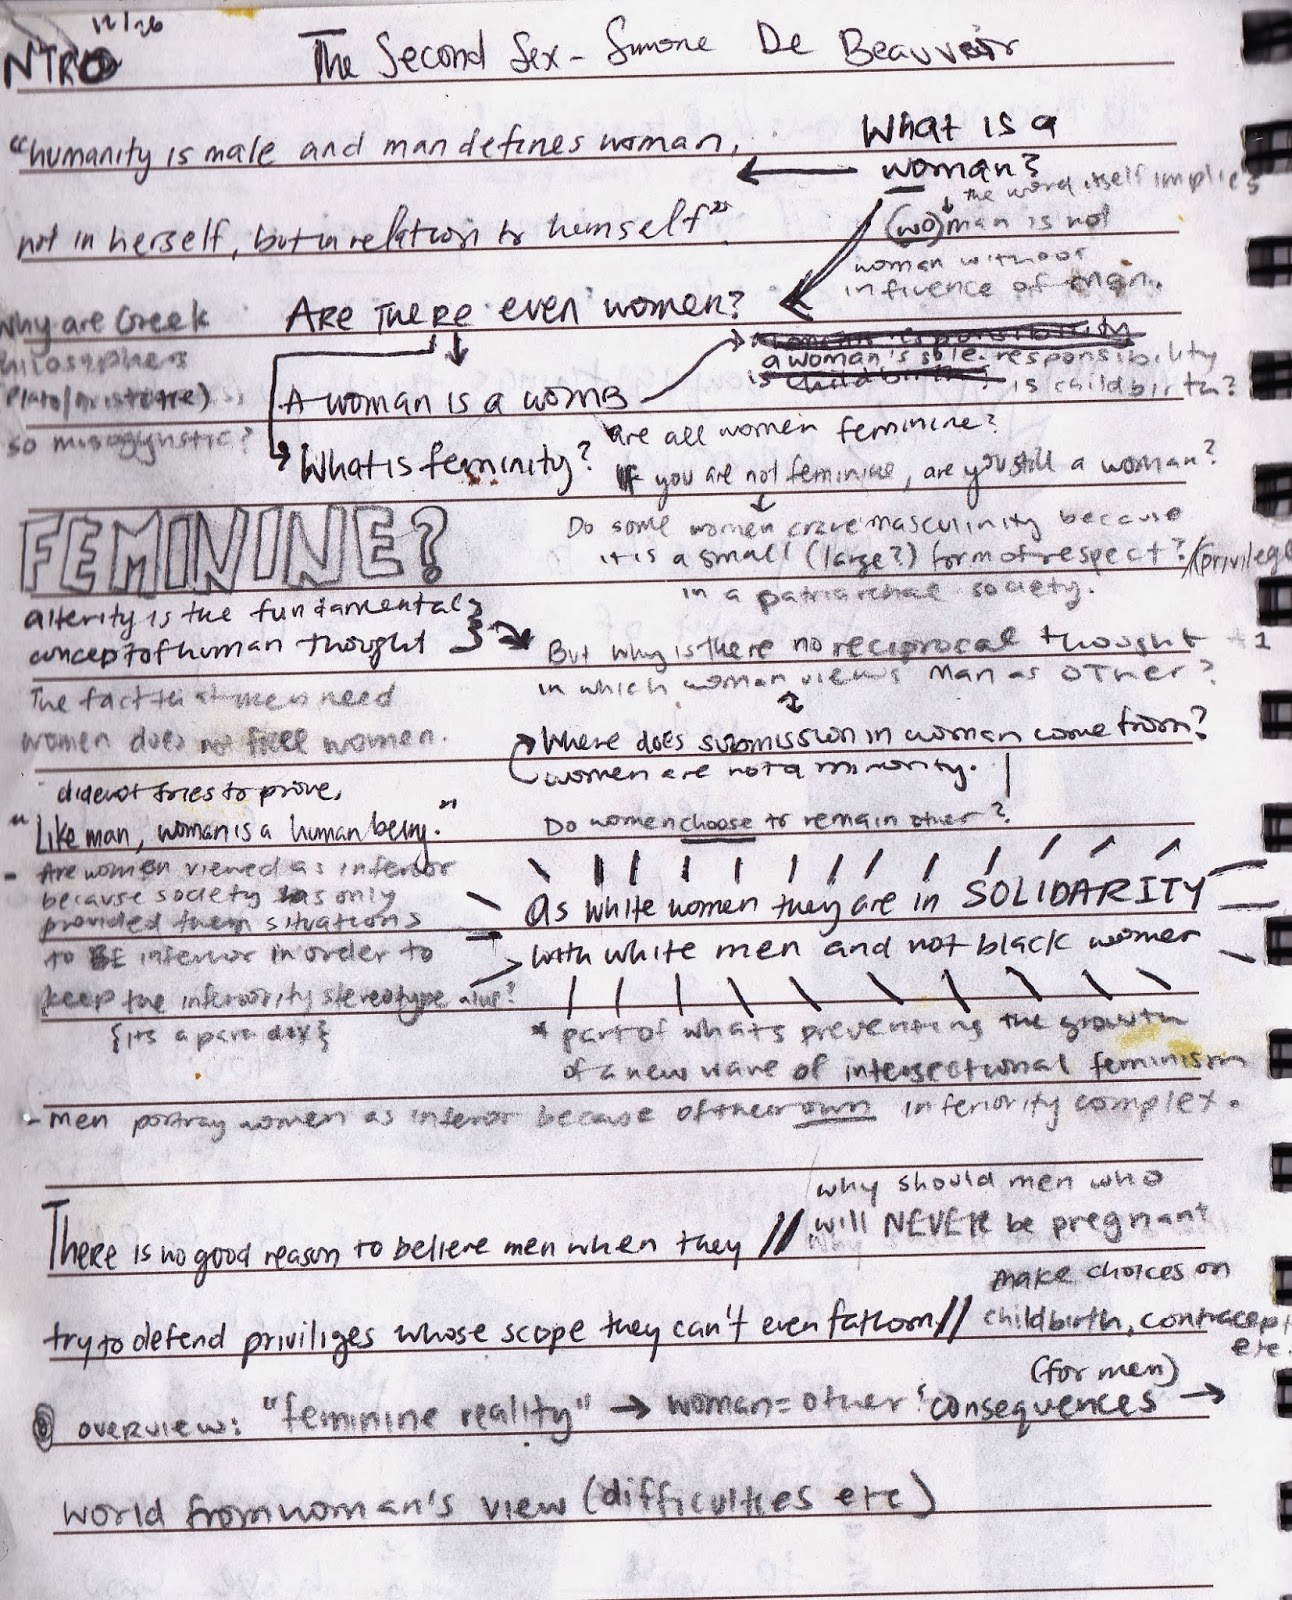 12/26
NTRO
The Second Sex - Simone De Beauvoir
"humanity is male and man defines woman,
not in herself, but in relation to himself"
What is a
woman?
the word itself implies
(wo)man is not
woman without
influence of man.
Why are Greek
philosophers
(Plato/Aristotle)
so misogynistic?
ARE THERE even women?
a woman's sole responsibility
is childbirth?
A woman is a womb
What is feminity?
are all women feminine?
If you are not feminine, are you still a woman?
Do some women crave masculinity because
it is a small (large?) form of respect?/(privilege
in a patriarchal society.
FEMININE?
alterity is the fundamental
concept of human thought
But why is there no reciprocal thought *1
in which woman views Man as OTHER?
The fact that men need
women does not free women.
Where does submission in woman come from?
women are not a minority.
diderot tries to prove,
"Like man, woman is a human being."
Do women choose to remain other?
- Are women viewed as inferior
because society has only
provided them situations
to BE inferior in order to
keep the inferiority stereotype alive?
{its a paradox}
As white women they are in SOLIDARITY
with white men and not black women
* part of whats preventing the growth
of a new wave of intersectional feminism
- men portray women as inferor because of their own inferiority complex.
There is no good reason to believe men when they //
try to defend priviliges whose scope they can't even fathom //
why should men who
will NEVER be pregnant
make choices on
childbirth, contracept
etc.
(for men)
overview: "feminine reality" → woman = other & consequences →
world from woman's view (difficulties etc)